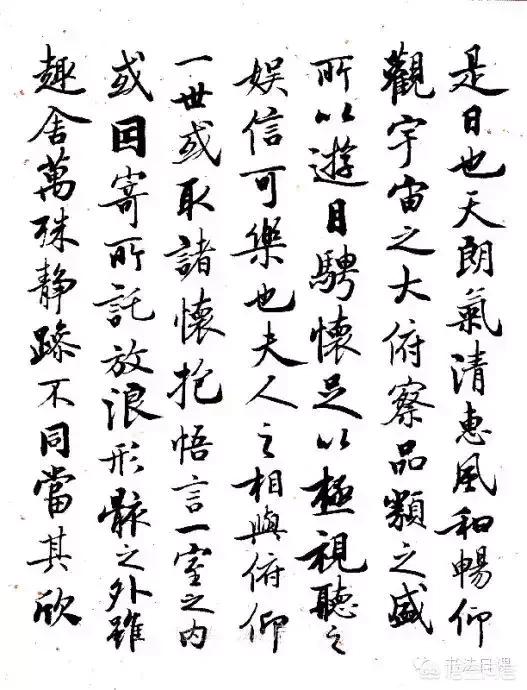 是日也天朗氣清惠風和暢仰
觀宇宙之大俯察品類之盛
所以遊目騁懷足以極視聽之
娱信可樂也夫人之相與俯仰
一世或取諸懷抱悟言一室之内
或因寄所託放浪形骸之外雖
趣舍萬殊静躁不同當其欣
书法日课